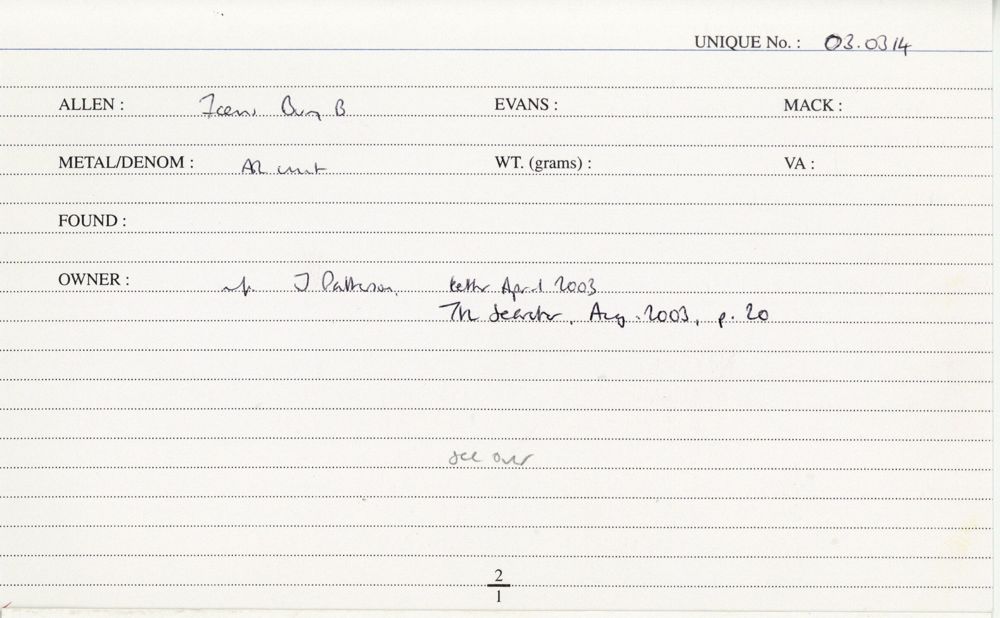 UNIQUE No. : 03.0314
ALLEN : Iceni Bury B EVANS : MACK :
METAL/DENOM : AR unit WT. (grams) : VA :
FOUND :
OWNER : J Patterson. letter April 2003
The Searcher, Aug. 2003, p. 20
see over
2
1